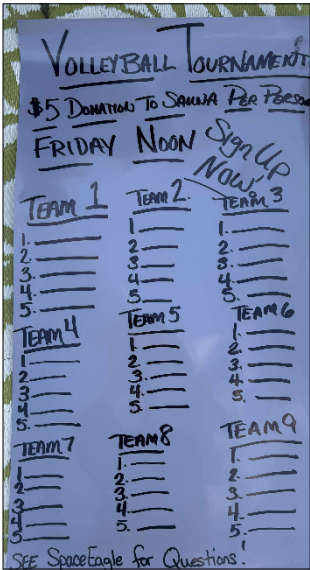 VOLLEYBALL TOURNAMENT
$5 DONATION TO SAUNA PER PERSON
FRIDAY NOON
Sign UP
NOW!
TEAM 1
1.
2.
3.
4.
5.
TEAM 2.
1
2
3
4
5.
TEAM 3
1.
2.
3.
4.
5.
TEAM 4
1
2
3
4
5.
TEAM 5
1
2.
3.
4.
5.
TEAM 6
1.
2.
3.
4.
5.
TEAM 7
1
2
3
4
5
TEAM 8
1.
2.
3.
4.
5.
TEAM 9
1.
2.
3.
4.
5.
SEE SpaceEagle for Questions!